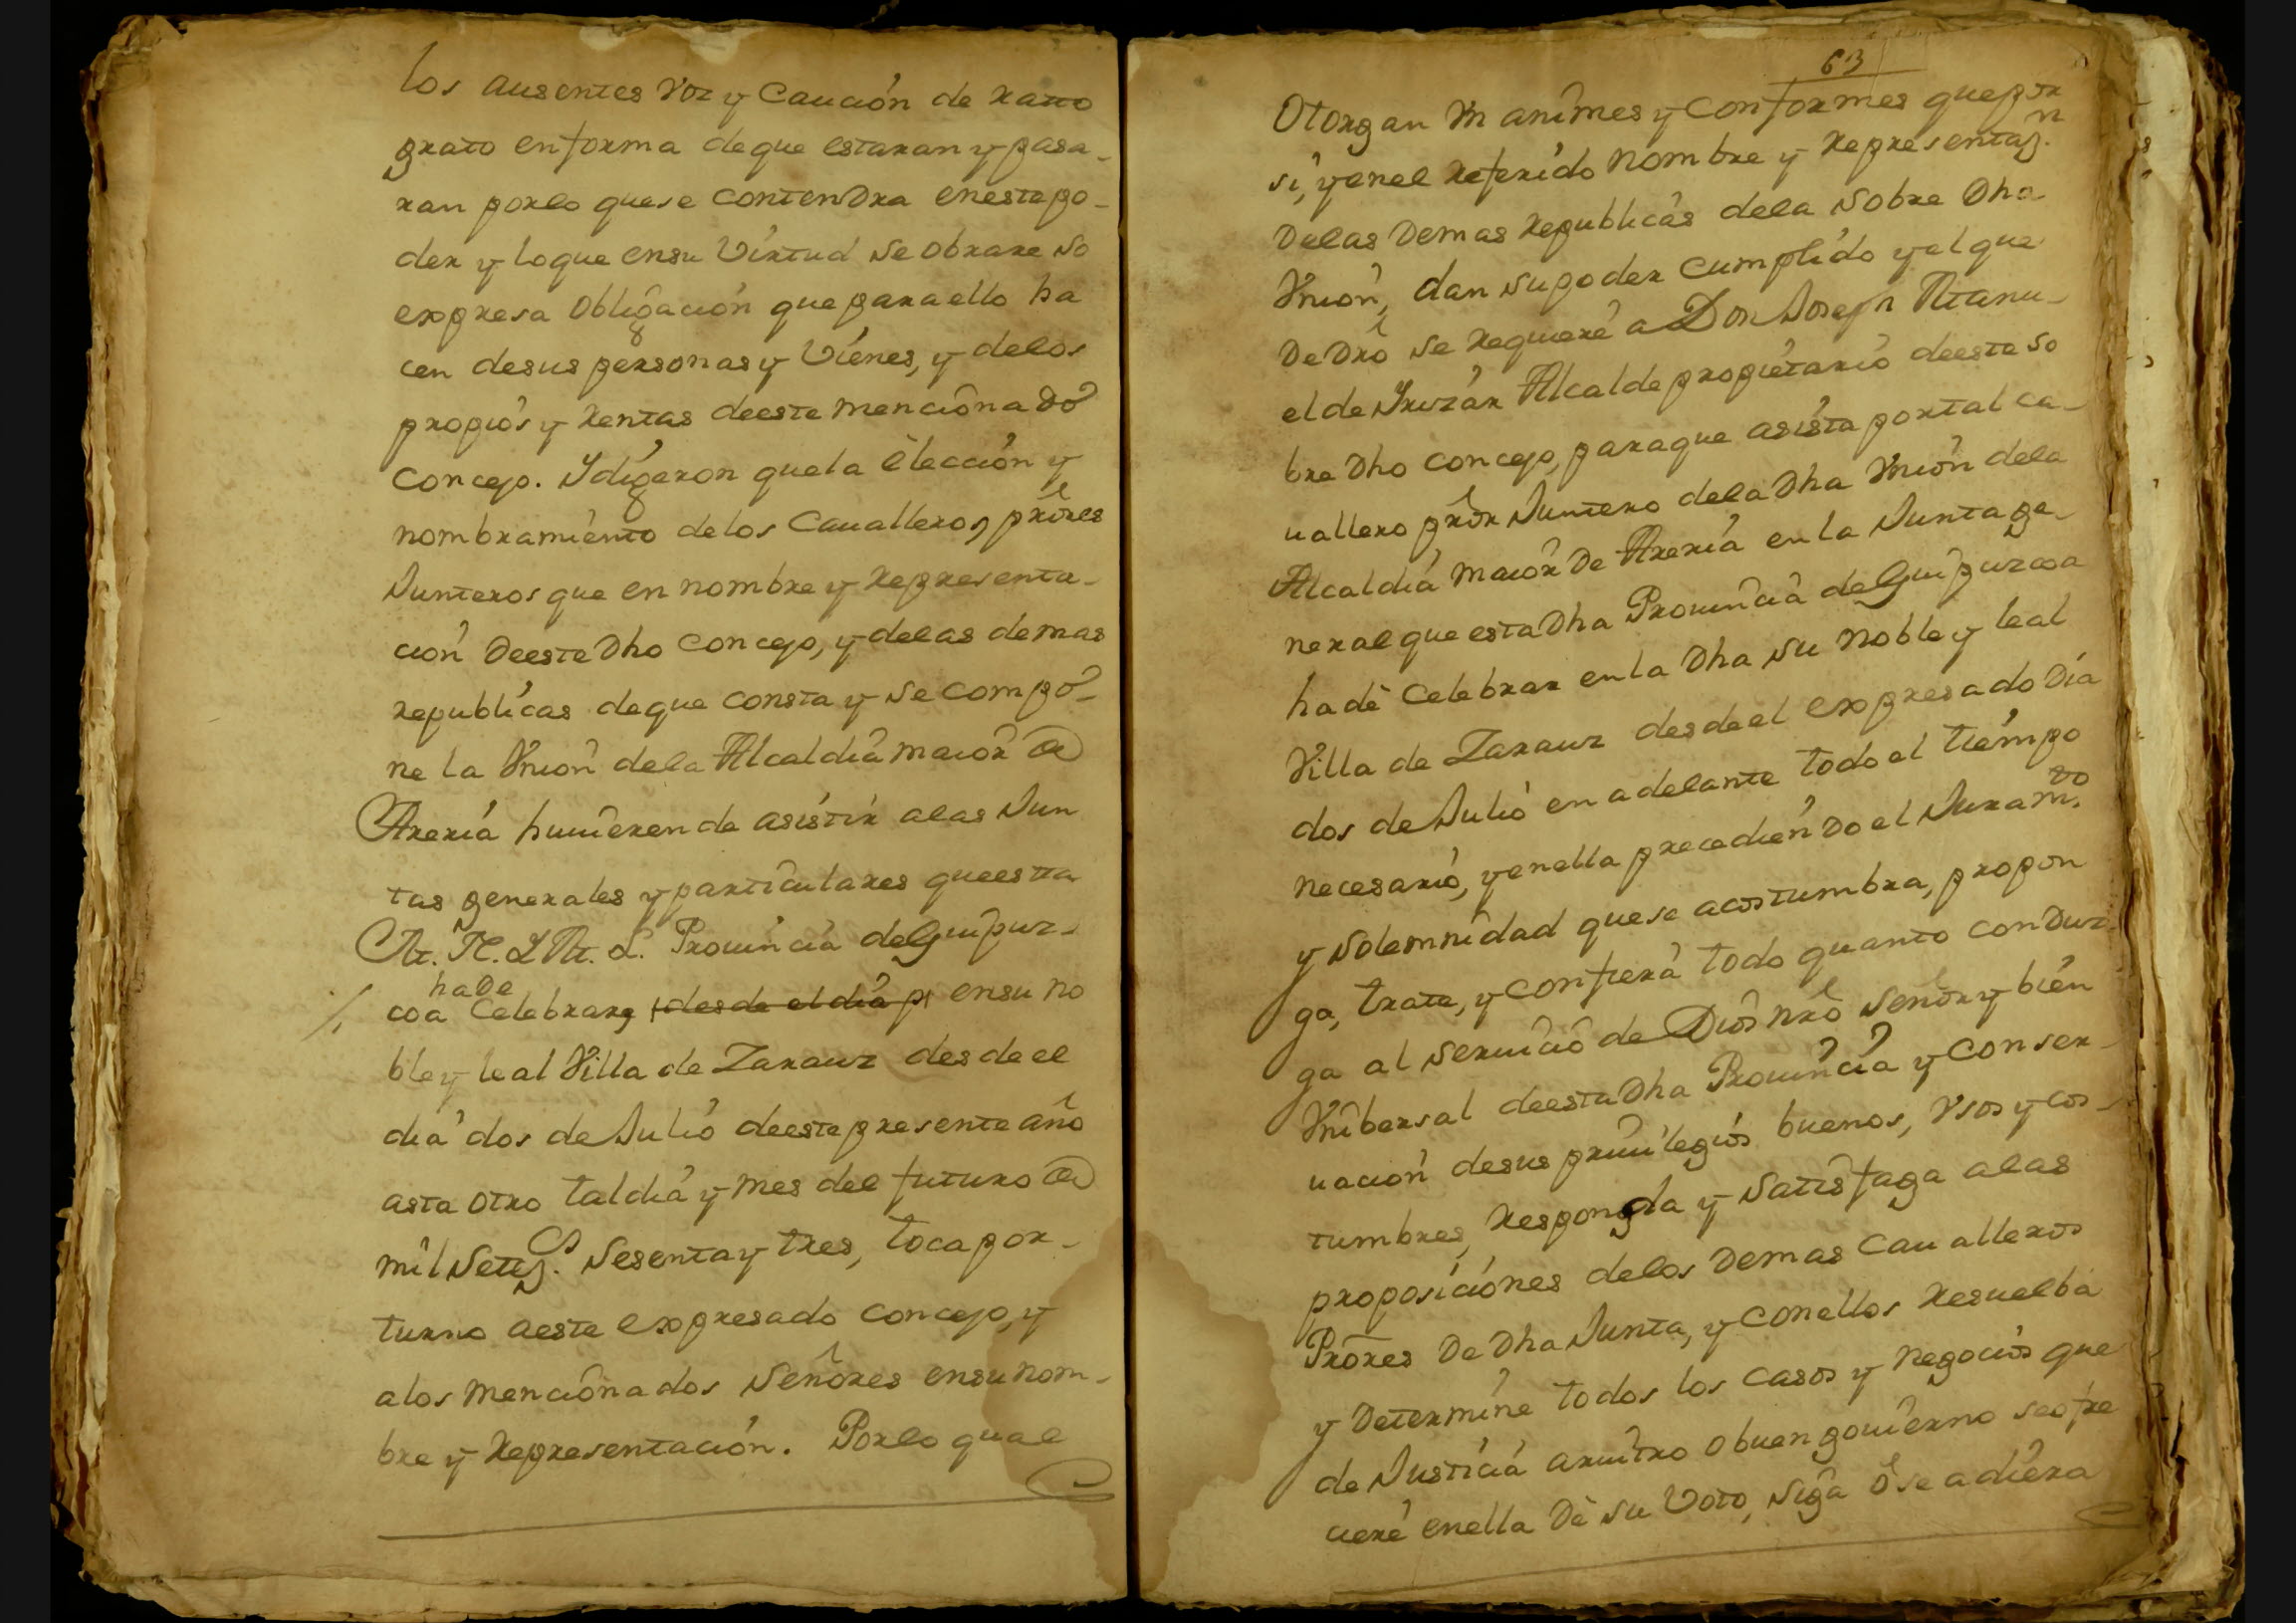 los ausentes voz y Caución de ratto
grato enforma deque estaran y pasa-
ran porlo quese contendra enestepo-
der y loque ensu Virtud se obrare so
expresa obligación que paraello ha
cen desus personas y Vienes, y delos
propios y Rentas deeste mencionado
Concejo. Y digeron quela elección y
nombramiento delos Caualleros prores
Junteros que en nombre y Representa-
ción deeste Dho Concejo, y delas demas
republicas deque consta y se compo-
ne la Vnion dela Alcaldia maior de
Areria huuieren de asistir alas Jun
tas generales y particulares queesta
M. N. Y M. L. Prouincia de Guipuz-
hade
coa Celebrar, desde el dia p ensu no
ble y leal Villa de Zarauz desdeel
dia dos de Julio deeste presente año
asta otro tal dia y mes del futuro de
mil Seteçs. Sesenta y tres, toca por-
turno aeste expresado Concejo, y
alos mencionados Señores ensu nom-
bre y Representación. Porlo qual
63
Otorgan Vnanimes y Conformes quepor
si, yenel Referido nombre y Representaçn.
Delas Demas Republicas dela Sobre Dha
Vnion, dan supoder cumplido yelque
De Dro se Requiere a Don Joseph Manu-
el de Yruzar Alcalde propietario deeste so
bre Dho Concejo, paraque asista por tal ca-
uallero pror Juntero dela Dha Vnion dela
Alcaldia maior De Areria en la Junta ge-
neral que esta Dha Prouincia de Guipuzcoa
ha dè Celebrar en la Dha su noble y leal
Villa de Zarauz desdeel expresado Dia
dos de Julio en adelante todo el tiempo
necesario, y enella precediendo el Juramto.
y solemnidad quese acostumbra, propon
ga, trate, y confiera todo quanto conduz
ga al seruicio de Dios nro Señor y bien
Vnibersal deesta Dha Prouincia y conser-
uacion desus priuilegios buenos, Vsos y cos-
tumbres, Responda y Satisfaga alas
proposiciones delos Demas Caualleros
Prores De Dha Junta, y conellos Resuelba
y Determine todos los casos y negocios que
de Justicia aruitro o buen gouierno seofre
ciere enella Dè su Voto, siga ò se adiera